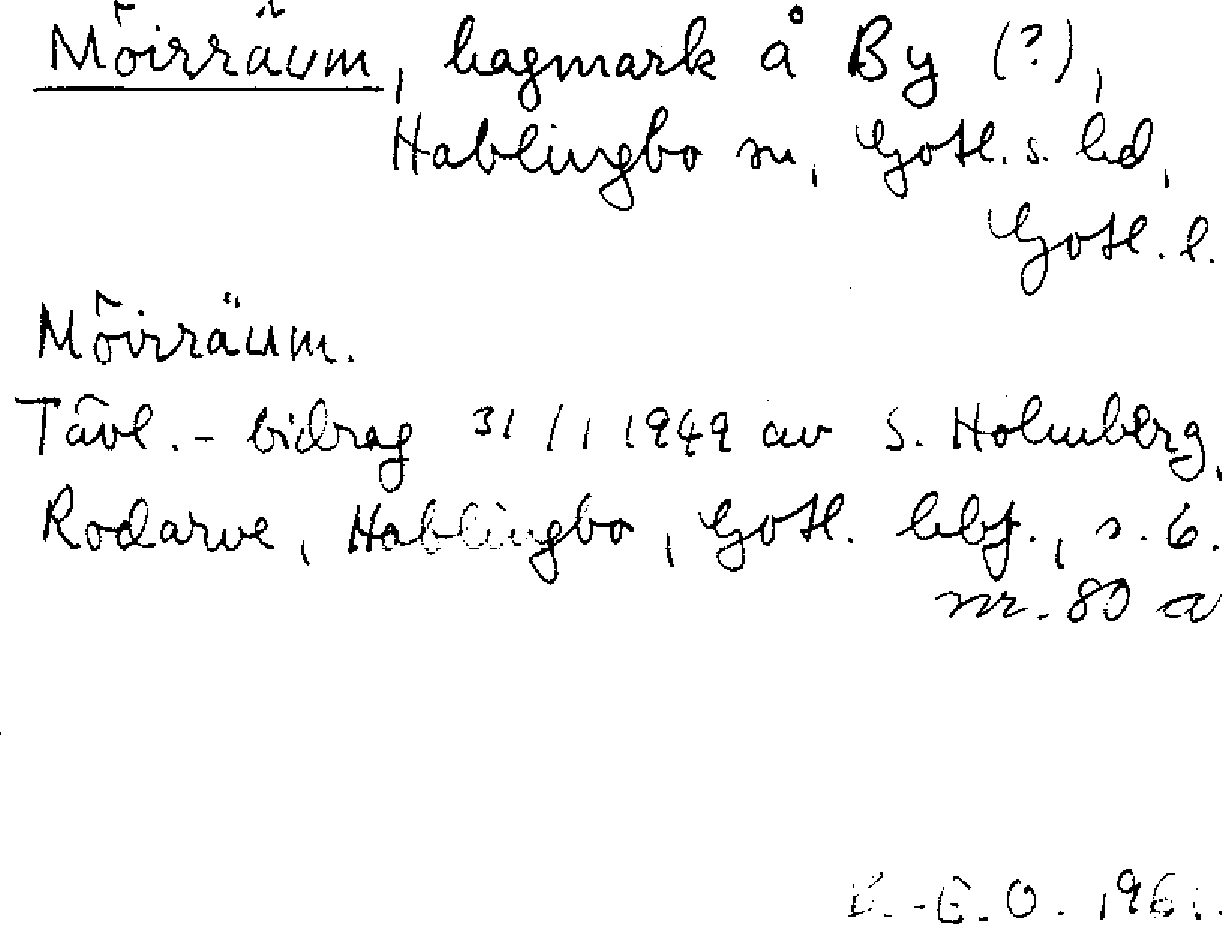 Möirräum, hagmark å By (?),
Hablingbo sn, Gotl. s. hd,
Gotl. l.
Möirräum.
Tävl.-bidrag 31/1 1949 av S. Holmberg,
Rodarve, Hablingbo, Gotl. hbf., s. 6.
nr. 80 a
E.O. 196